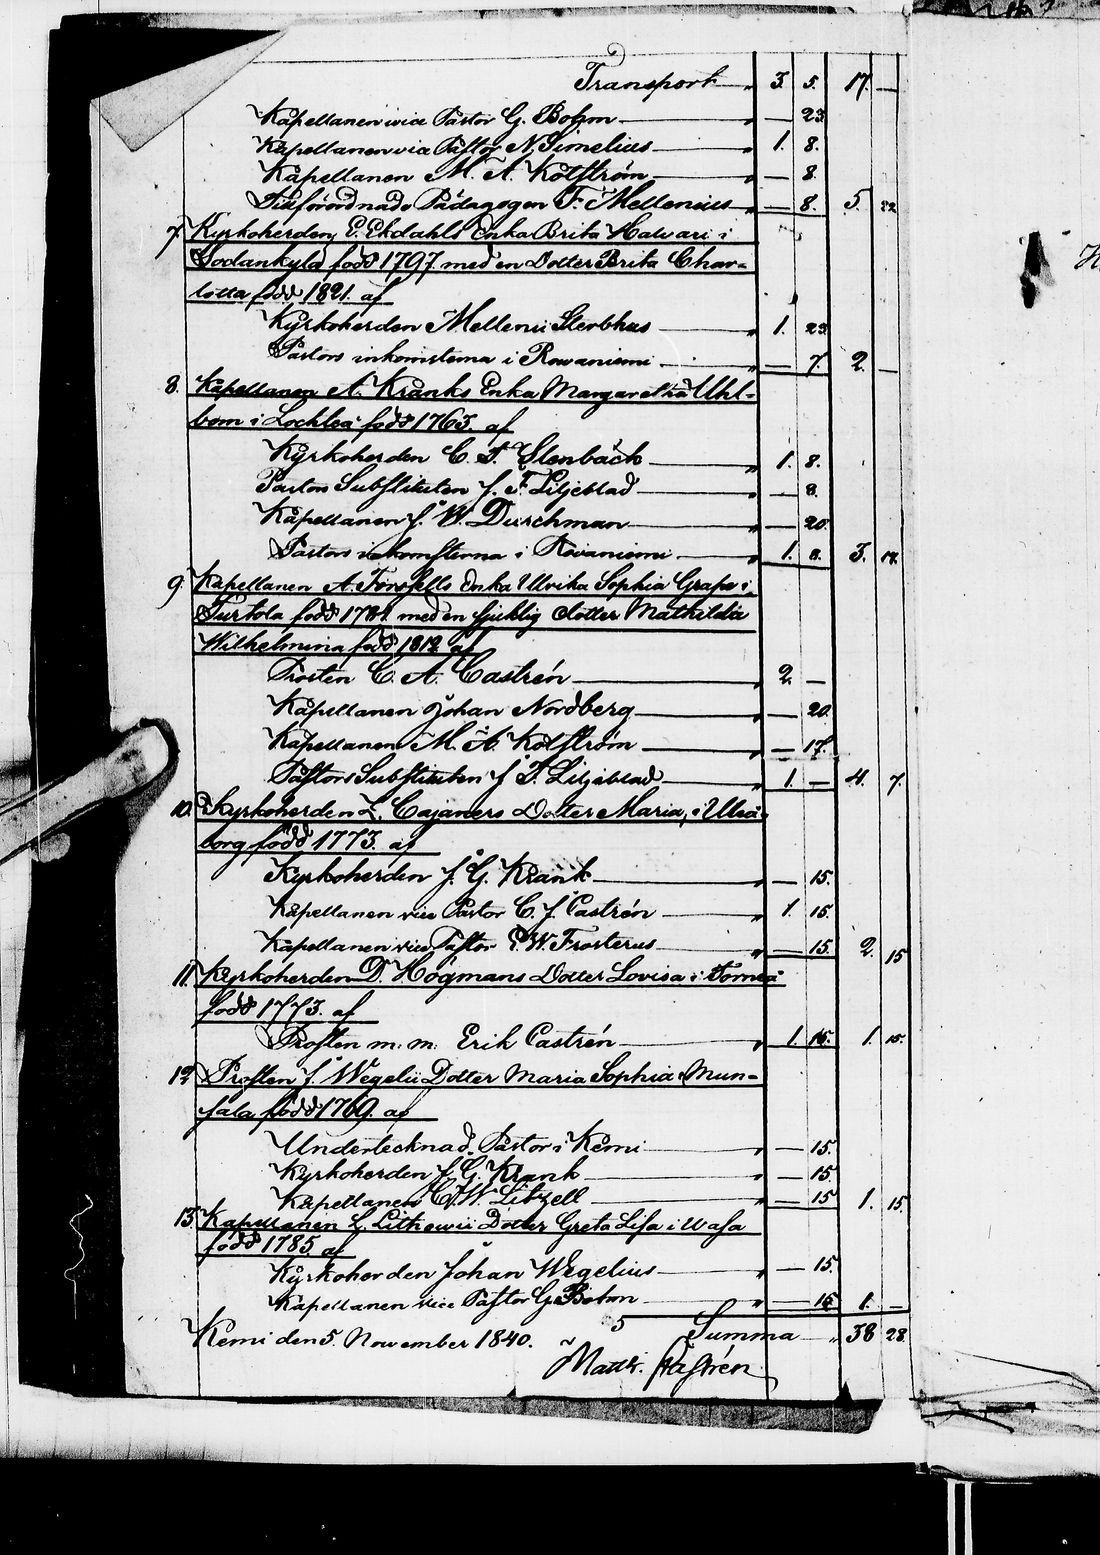 Transport " 3. 5. 17. —
Kapellanen vice Pastor G. Bohm " — 23
Kapellanen vice Pastor N. Simelius " 1. 8.
Kapellanen M. A. Kolström " — 8.
Tillförordnade Pädagogen F. Mellenius " — 8. 5. 22.
7. Kyrkoherden E. Ekdahls Enka Brita Halvari i
Sodankylä född 1797 med en Dotter Brita Char-
lotta född 1821. af
Kyrkoherden Mellenii Sterbhus " 1. 23
Pastors inkomsterna i Rovaniemi " — 7. 2. —
8. Kapellanen A. Kranks Enka Margaretha Uhl-
bom i Lochteå född 1763. af
Kyrkoherden C. F. Stenbäck " 1. 8.
Pastors Substituten J. F. Liljeblad " — 8.
Kapellanen J. W. Durchman " — 20.
Pastors inkomsterna i Rovaniemi " 1. 8. 3. 12.
9. Kapellanen A. Forsells Enka Ulrika Sophia Grape i
Turtola född med en sjuklig dotter Mathilda
Wilhelmina född 1812 af
Prosten C. A. Castrén " 2. —
Kapellanen Johan Nordberg " — 20.
Kapellanen M. A. Kolström " — 17.
Pastors Substituten J. F. Liljeblad " 1. — 4. 7.
10. Kyrkoherden Z. Cajaners Dotter Maria, i Uleå-
borg född 1773. af
Kyrkoherden J. G. Krank " — 15.
Kapellanen vice Pastor C. J. Castrén " 1. 15.
Kapellanen vice Pastor E. W. Frosterus " — 15. 2. 15
11. Kyrkoherden D. Högmans Dotter Lovisa i Torneå
född 1773. af
Prosten m. m. Erik Castrén " 1. 15. 1. 15.
12. Prosten J. Wegelii Dotter Maria Sophia i Mun-
sala född 1769. af
Undertecknad Pastor i Kemi " — 15.
Kyrkoherden J. G. Krank " — 15.
Kapellanen C. W. Litzell " — 15 1. 15.
13. Kapellanen L. Lithovii Dotter Greta Lisa i Wasa
född 1785. af
Kyrkoherden Johan Wegelius " — 15.
Kapellanen vice Pastor G. Bohm " — 15 1. —
Kemi den 5. November 1840. Summa " 38 28.
Matth. Castrén